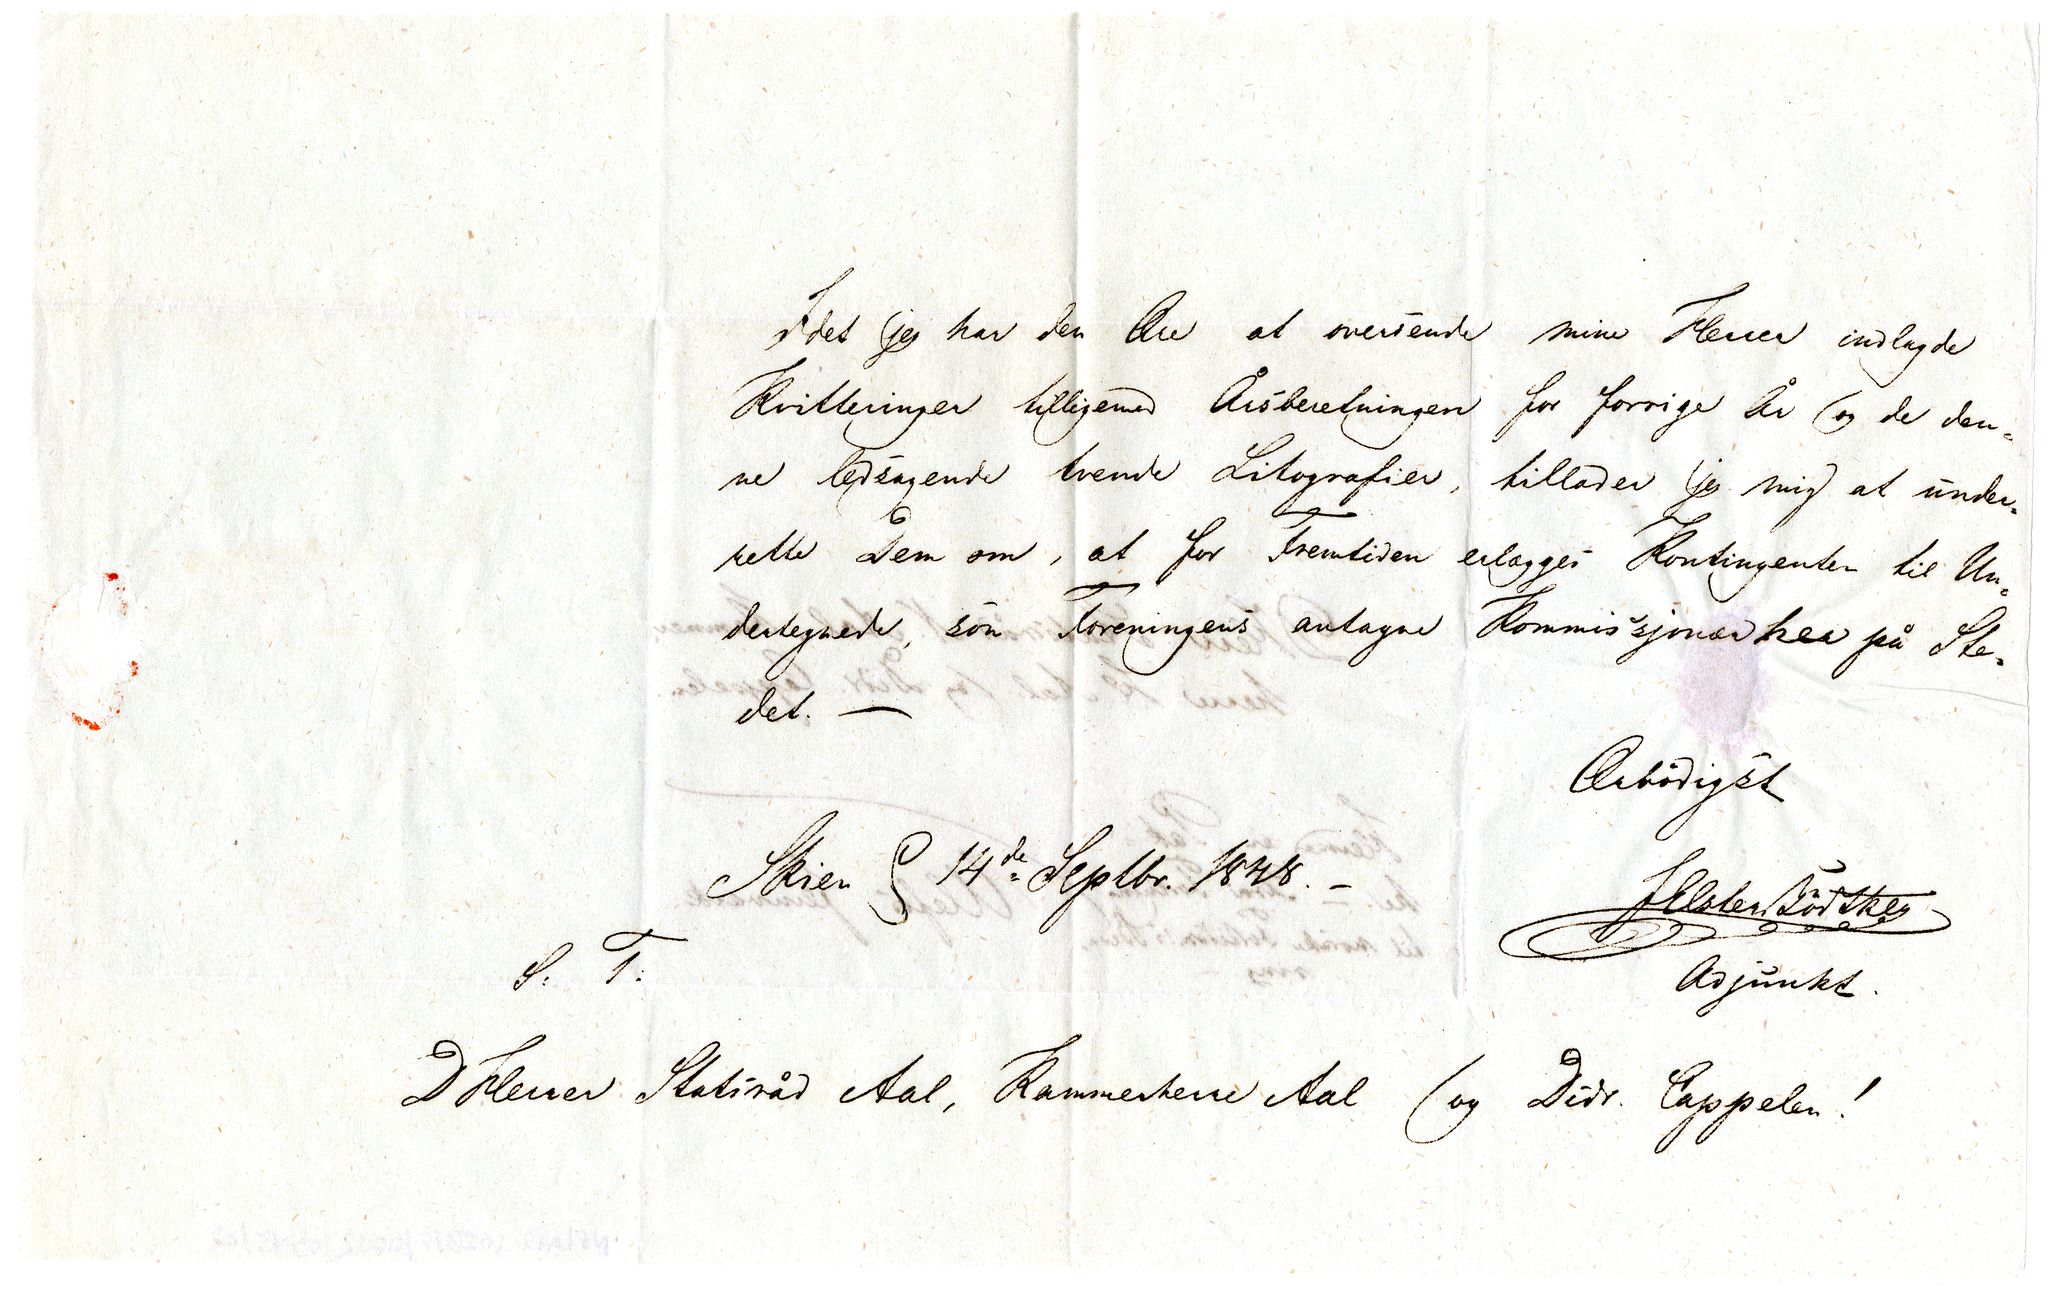 Idet jeg har den Ære at oversende mine Herrer indlagde
Kvitteringer tilligemed Årsberetningen for forrige År og de den=
ne ledsagende tvende Litografier, tillader jeg mig at under=
rette Dem om, at for Fremtiden erlægges Kontingenten til Un=
dertegnede, som Foreningens antagne Kommissjonær her på Ste=
det. —
Ærbödigst
Skien 14de Septbr. 1848. –
Bödtker
Adjunkt.
S. T.
DHerrer Statsråd Aal, Kammerherre Aal og Didr. Cappelen!